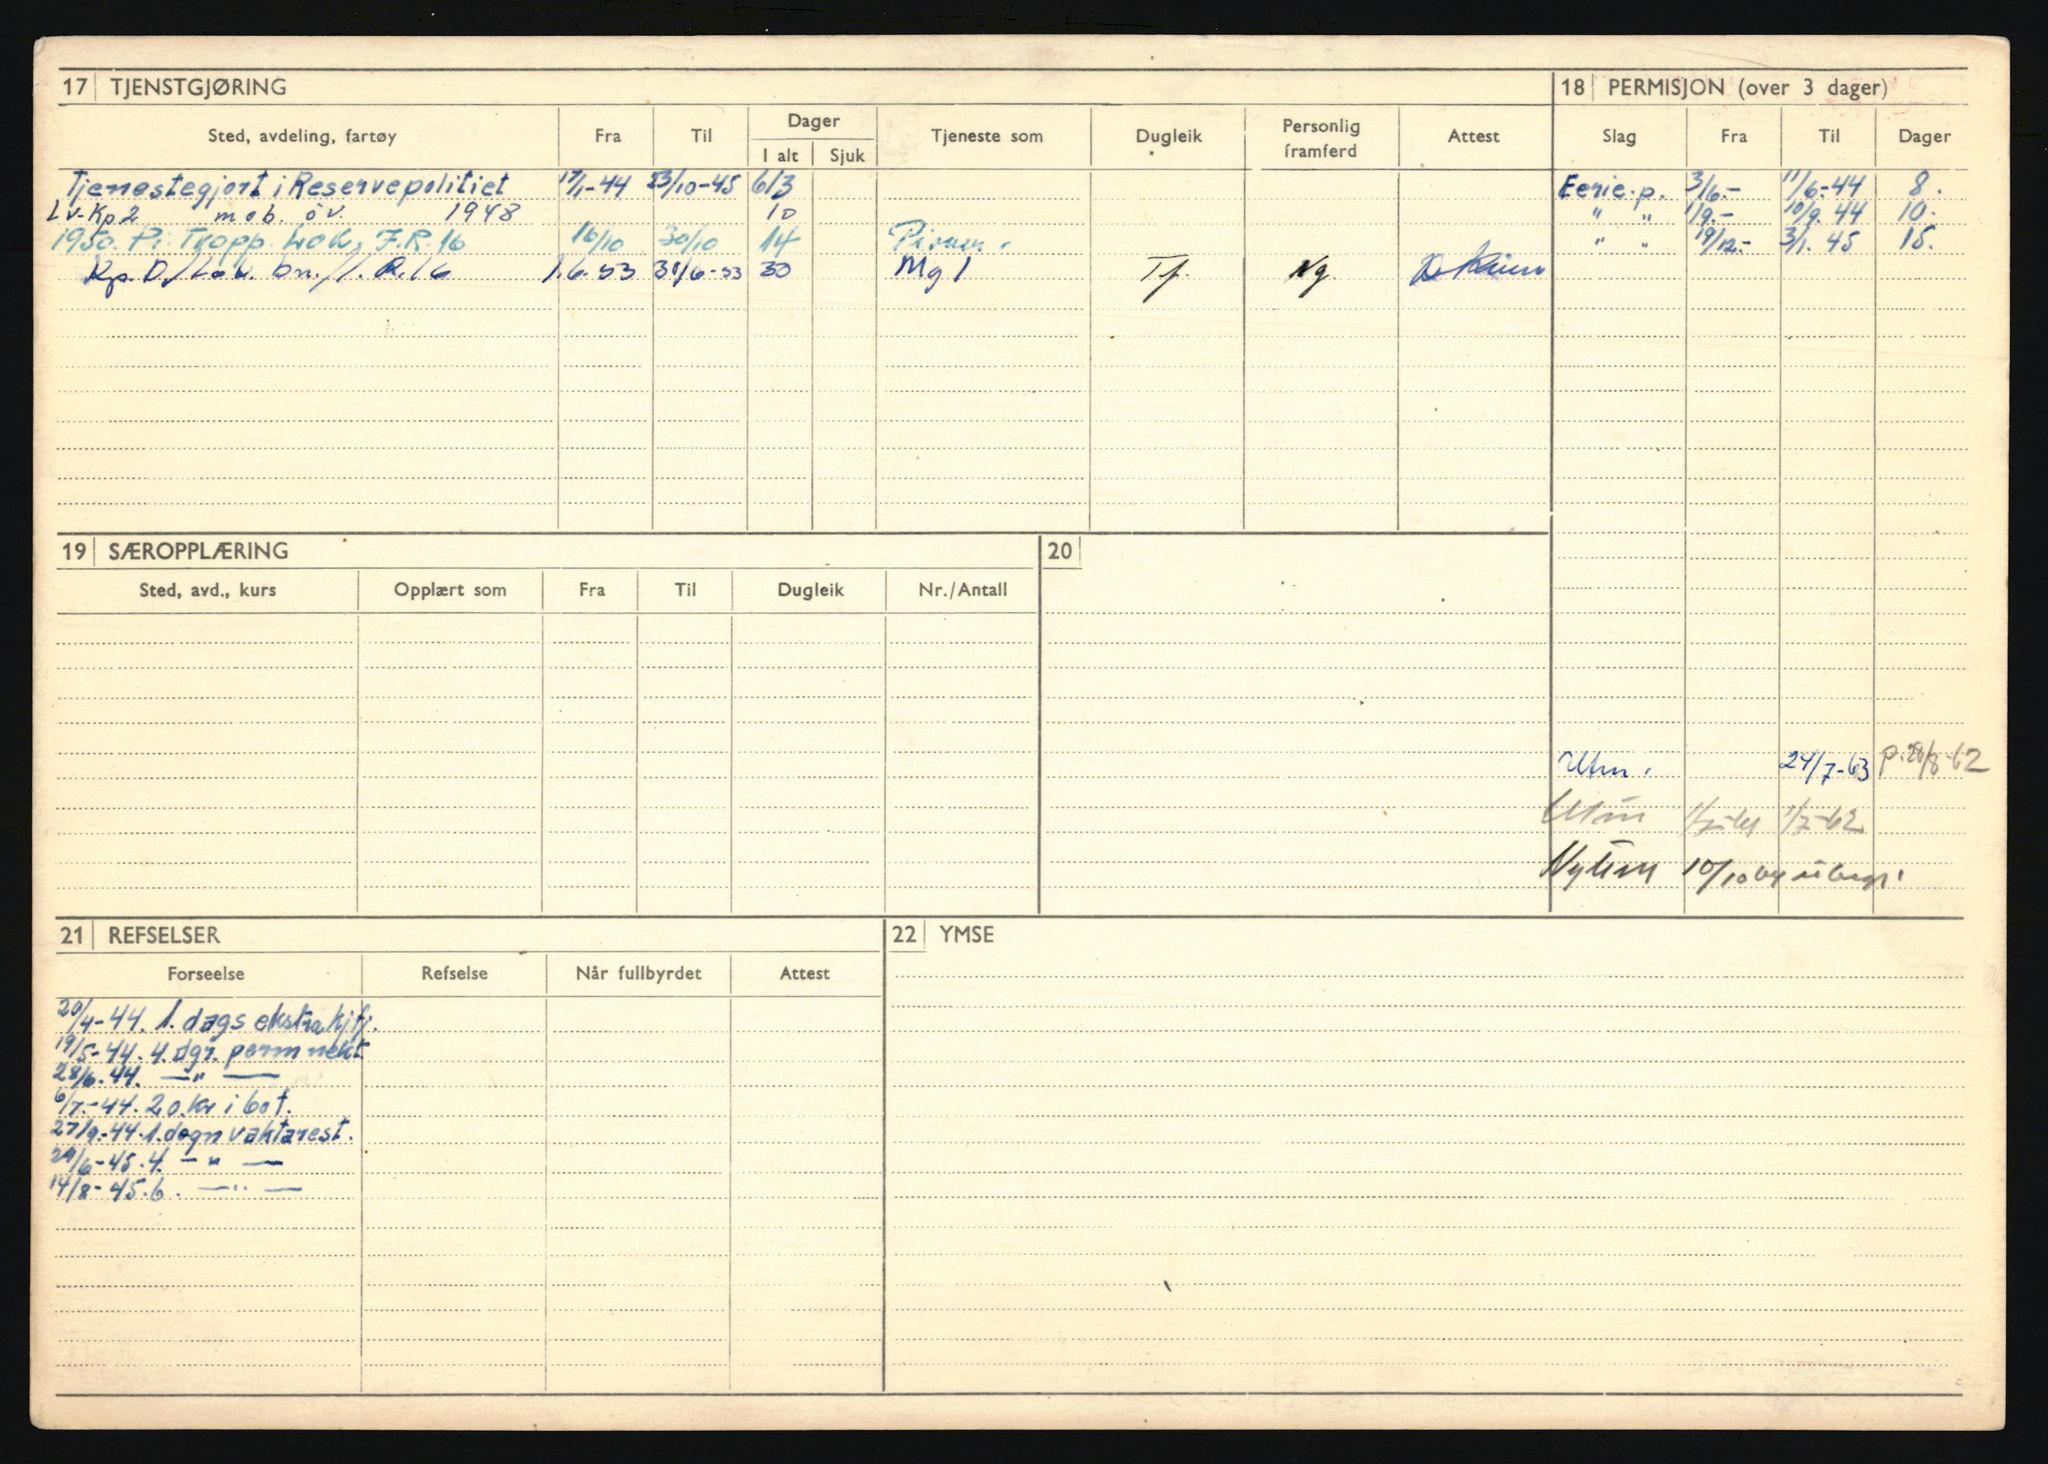 17 TJENSTGJØRING
18 PERMISJON (over 3 dager)
Sted, avdeling, fartøy Fra Til Dager I alt Sjuk Tjeneste som Dugleik Personlig framferd Attest
Slag Fra Til Dager
Tjenestegjort i Reservepolitiet 17/1-44 23/10-45 613
Lv-Kp2 mob. öv. 1948 10
1950. Pi. Tropp. Lok, J.R. 16 16/10 30/10 14
Kp. D./ bn./I.R.16 1.6.53 30/6-53 30 Mg 1 Tj. Ng
Eerie.p. 3/6.- 11/6-44 8.
" " 1/9.- 10/9.44 10.
" " 19/12.- 3/1.45 15.
19 SÆROPPLÆRING
20
Sted, avd., kurs Opplært som Fra Til Dugleik Nr./Antall
Utm. 24/7-63 p. 28/8-62
Utm 1/7-62
10/10
21 REFSELSER
22 YMSE
Forseelse Refselse Når fullbyrdet Attest
20/4-44. 1. dags ekstra kjtj.
19/5-44. 4. dgr. perm nekt
28/6.44. —"—
6/7.-44. 20. kr i bot.
27/9.-44. 1. døgn vaktarest.
29/6-45. 4. —"—
14/8-45. 6. —"—